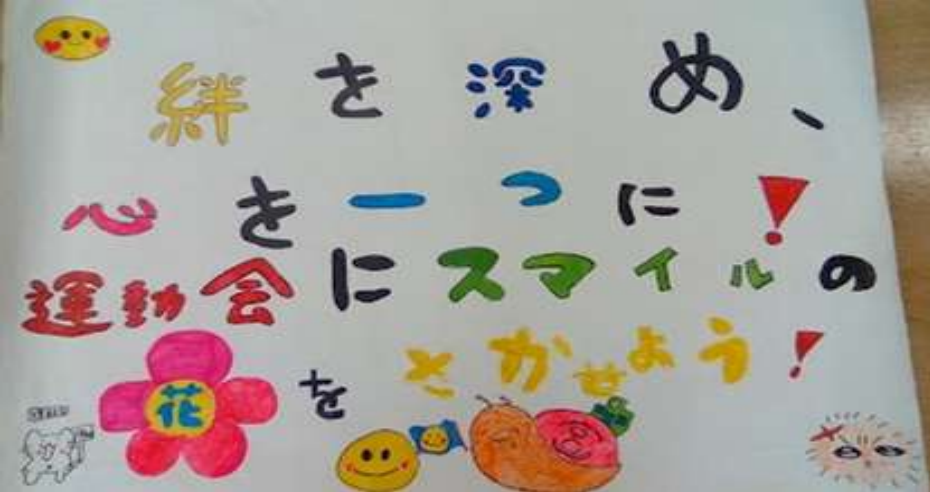 絆を深め、
心を一つに!
運動会にスマイルの
花をさかせよう!